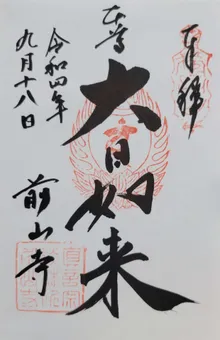 奉拝
本尊
大日如来
前山寺
令和四年
九月十八日